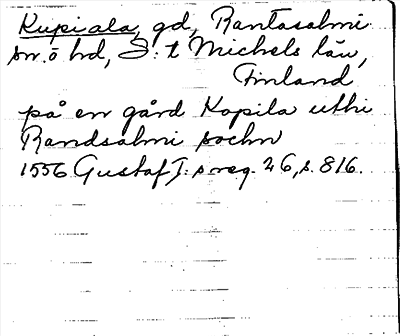 Kupiala, gd, Rantasalmi
sn. o hd, S:t Michels län,
Finland
på en gård Kopila uthi
Randsalmi sochn
1556 Gustaf I:s reg. 26, s. 816.